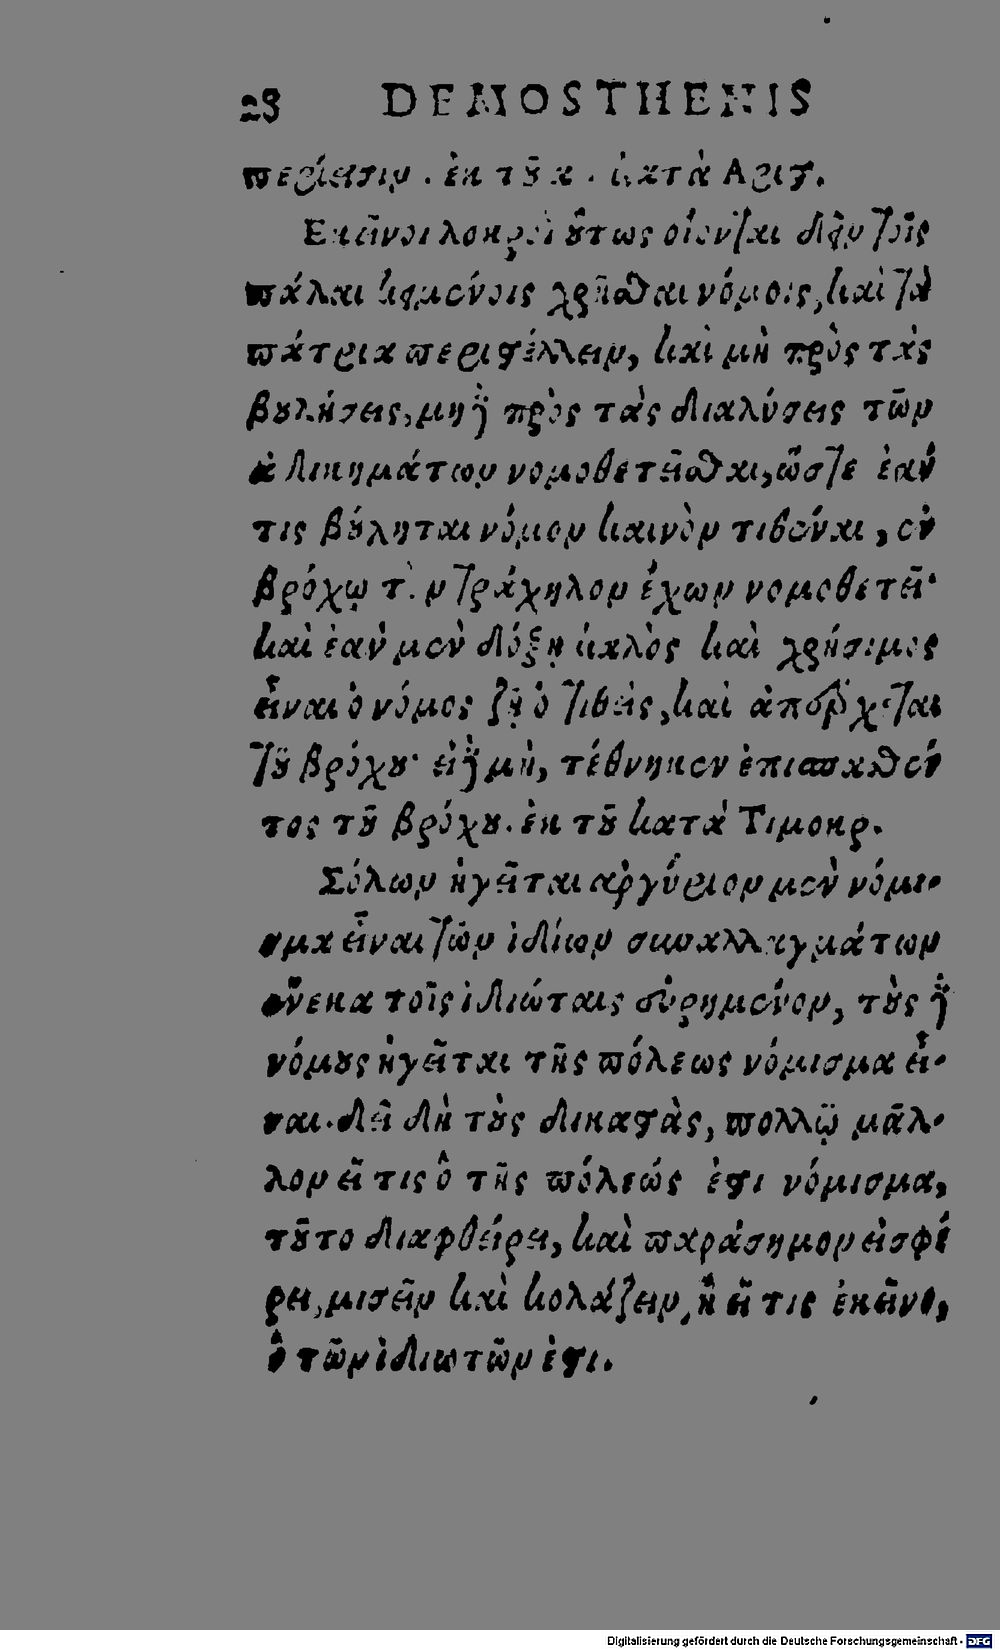 28 DEMOSTHENIS
περίεισιν. ἐκ τοῦ κ. κατὰ Αρις.
Εκεῖνοι λοκροὶ οὕτως οἴονται δεῖν τοῖς
πάλαι κειμένοις χρῆσθαι νόμοις, καὶ τὰ
πάτρια περιστέλλειν, καὶ μὴ πρὸς τὰς
βουλήσεις, μὴ δὲ πρὸς τὰς διαλύσεις τῶν
ἀδικημάτων νομοθετεῖσθαι, ὥστε ἐάν
τις βούληται νόμον καινὸν τιθέναι, ἐν
βρόχῳ τὸν τράχηλον ἔχων νομοθετεῖ·
καὶ ἐὰν μὲν δόξῃ καλὸς καὶ χρήσιμος
εἶναι ὁ νόμος ζῇ ὁ τιθεὶς, καὶ ἀπέρχεται
τοῦ βρόχου· εἰ δὲ μὴ, τέθνηκεν ἐπισπασθέν
τος τοῦ βρόχου. ἐκ τοῦ κατὰ Τιμοκρ.
Σόλων ἡγεῖται ἀργύριον μὲν νόμι-
σμα εἶναι τῶν ἰδίων συναλλαγμάτων
οὕνεκα τοῖς ἰδιώταις εὑρημένον, τοὺς δὲ
νόμους ἡγεῖται τῆς πόλεως νόμισμα εἶ-
ναι. δεῖ δὴ τοὺς δικαστὰς, πολλῷ μᾶλ-
λον εἴ τις ὃ τῆς πόλεώς ἐστι νόμισμα,
τοῦτο διαφθείρει, καὶ παράσημον εἰσφέ
ρει, μισεῖν καὶ κολάζειν, ἢ εἴ τις ἐκεῖνο,
ὃ τῶν ἰδιωτῶν ἐστι.
Digitalisierung gefördert durch die Deutsche Forschungsgemeinschaft - DFG